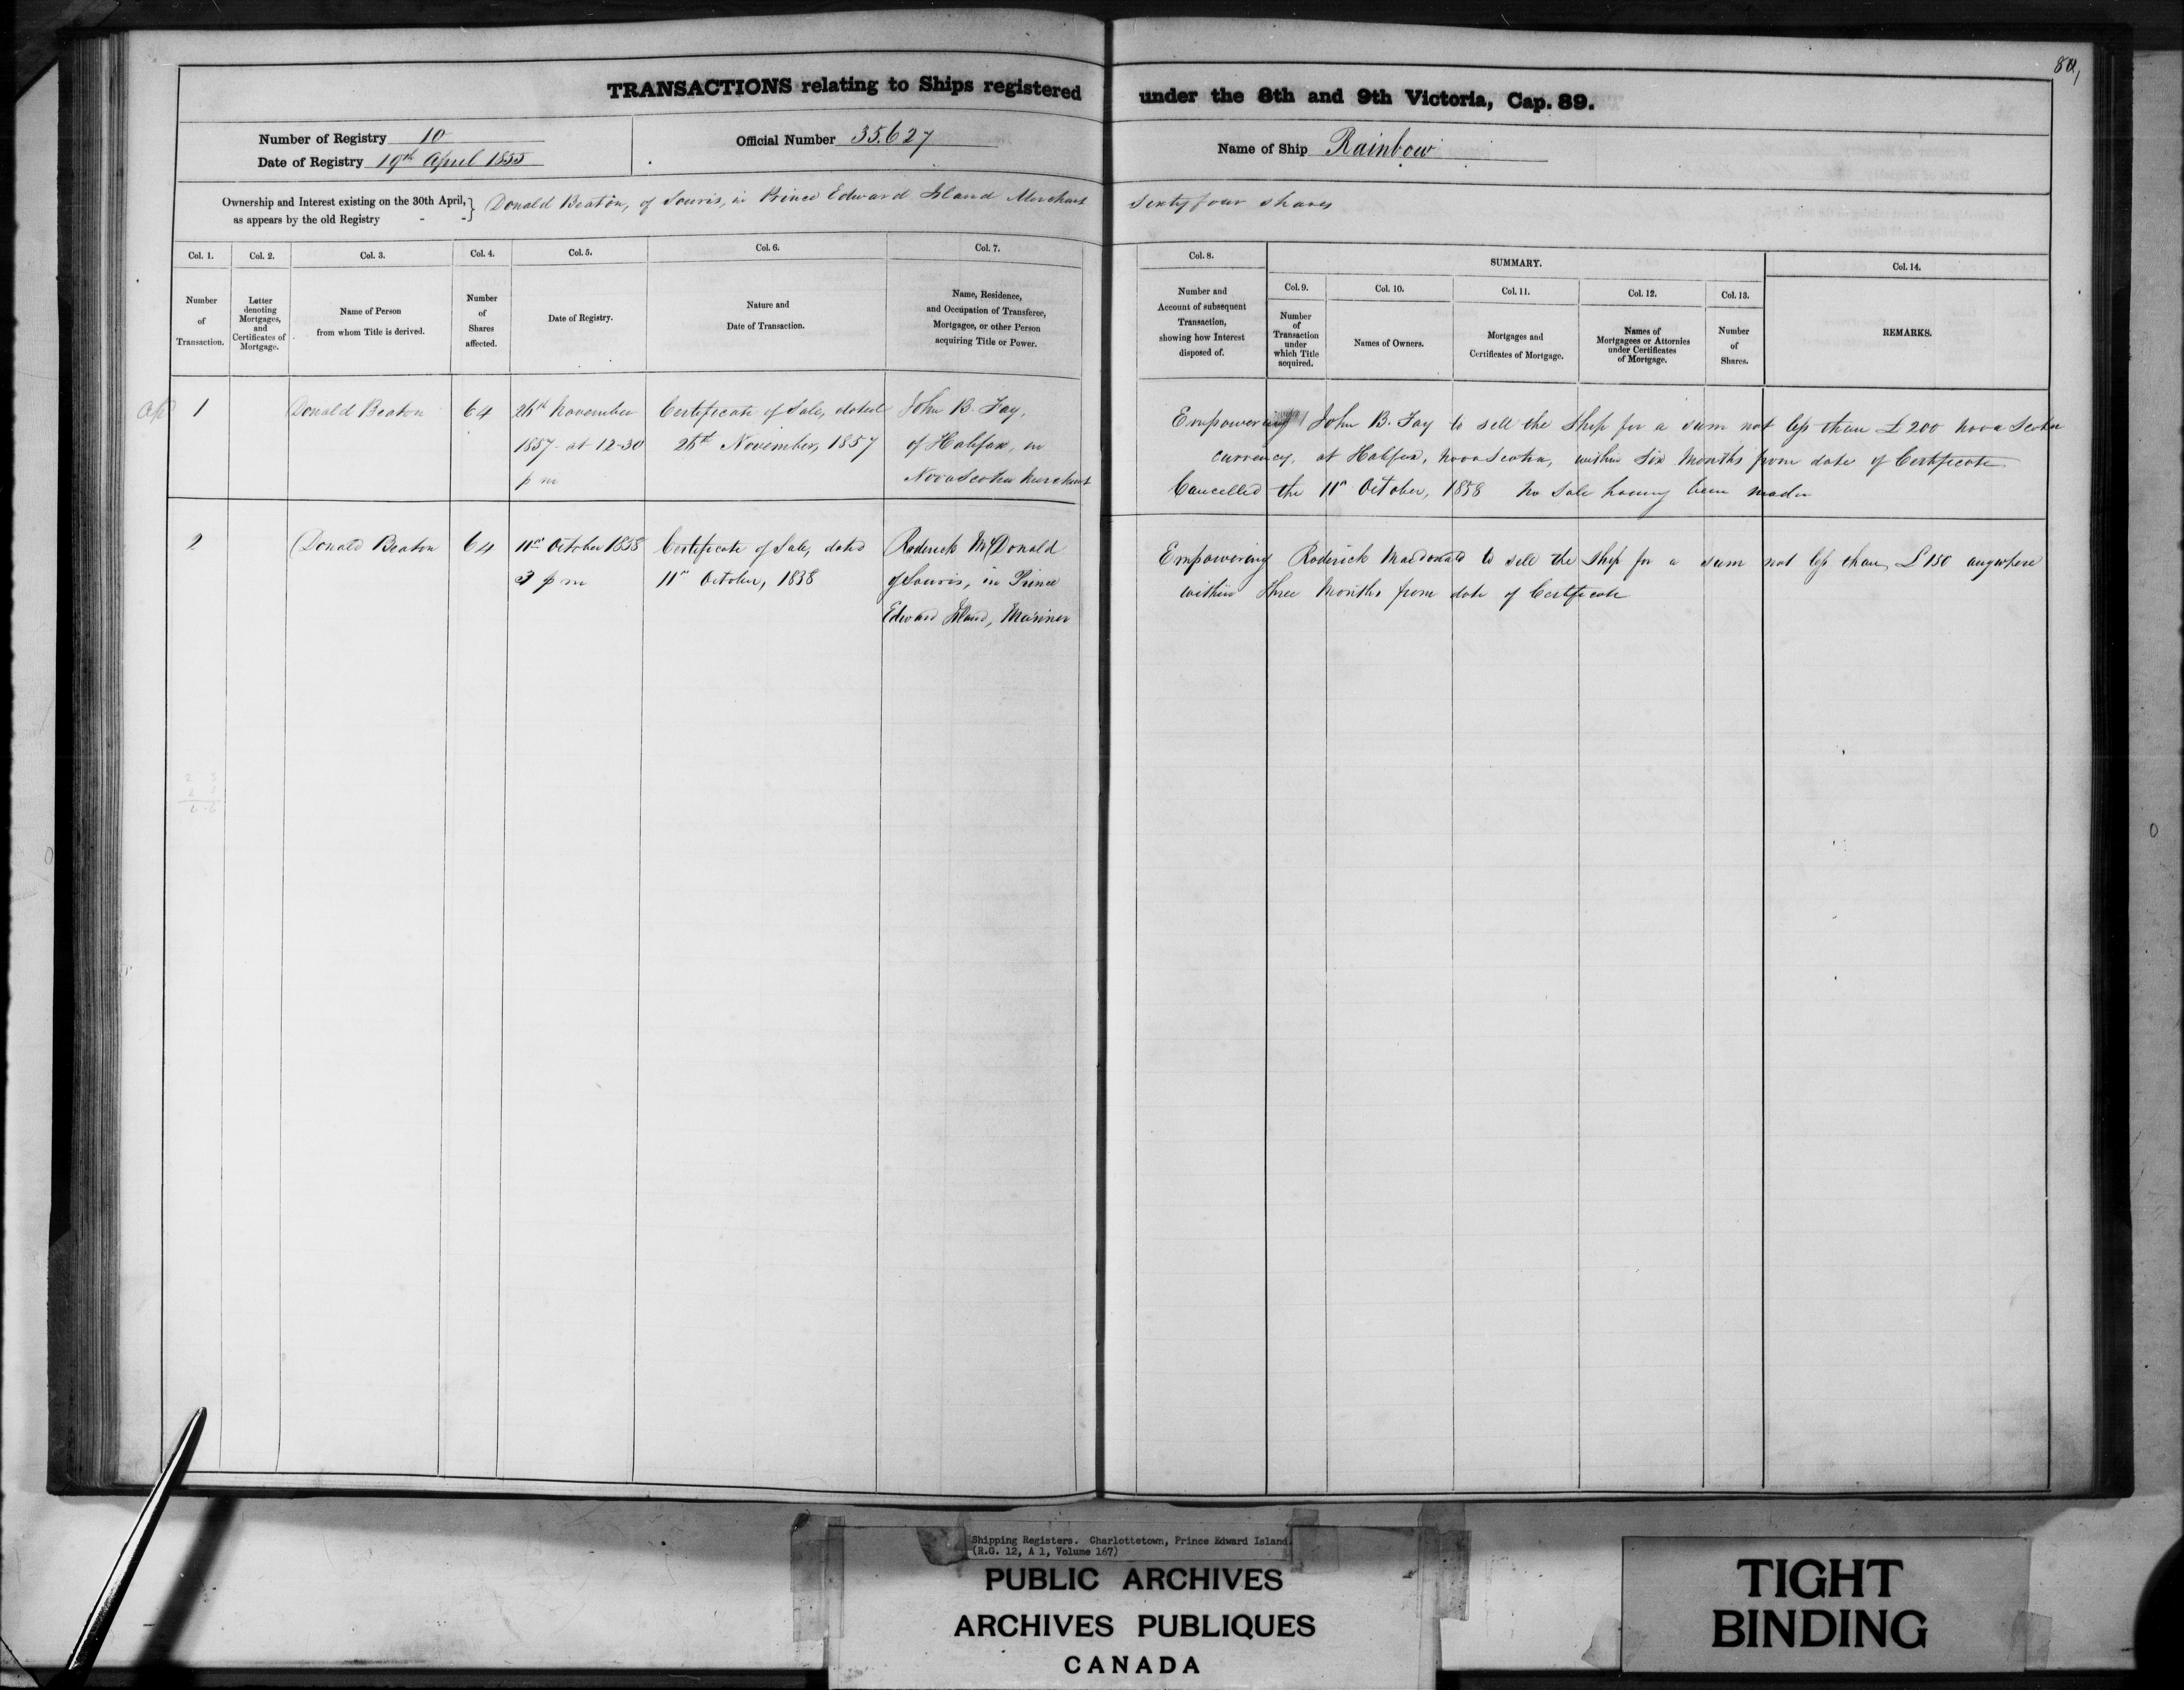 80,
TRANSACTIONS relating to Ships registered under the 8th and 9th Victoria, Cap. 89.
Number of Registry 10
Date of Registry 19th April 1855
Official Number 35.627
Name of Ship Rainbow
Ownership and Interest existing on the 30th April, as appears by the old Registry - - } Donald Beaton, of Souris, in Prince Edward Island Merchant Sixty four shares
Col. 1.
Number
of
Transaction.
Col. 2.
Letter
denoting
Mortgages,
and
Certificates of
Mortgage.
Col. 3.
Name of Person
from whom Title is derived.
Col. 4.
Number
of
Shares
affected.
Col. 5.
Date of Registry.
Col. 6.
Nature and
Date of Transaction.
Col. 7.
Name, Residence,
and Occupation of Transferee,
Mortgagee, or other Person
acquiring Title or Power.
Col. 8.
Number and
Account of subsequent
Transaction,
showing how Interest
disposed of.
SUMMARY.
Col. 9.
Number
of
Transaction
under
which Title
acquired.
Col. 10.
Names of Owners.
Col. 11.
Mortgages and
Certificates of Mortgage.
Col. 12.
Names of
Mortgagees or Attornies
under Certificates
of Mortgage.
Col. 13.
Number
of
Shares.
Col. 14.
REMARKS.
1
Donald Beaton
64
26th November
1857 - at 12-30
p m
Certificate of Sale, dated
26th November, 1857
John B. Fay,
of Halifax, in
Nova Scotia Merchant
Empowering John B. Fay to sell the Ship for a sum not less than £200 Nova Scotia
currency, at Halifax, Nova Scotia, within Six Months from date of Certificate
Cancelled the 11th October, 1858 No Sale having been made
2
Donald Beaton
64
11th October 1858
3 p m
Certificate of Sale, dated
11th October, 1858
Roderick McDonald
of Souris, in Prince
Edward Island, Mariner
Empowering Roderick Macdonald to sell the Ship for a sum not less than £150 anywhere
within Three Months from date of Certificate
Shipping Registers. Charlottetown, Prince Edward Island.
(R.G. 12, A 1, Volume 167)
PUBLIC ARCHIVES
ARCHIVES PUBLIQUES
CANADA
TIGHT
BINDING